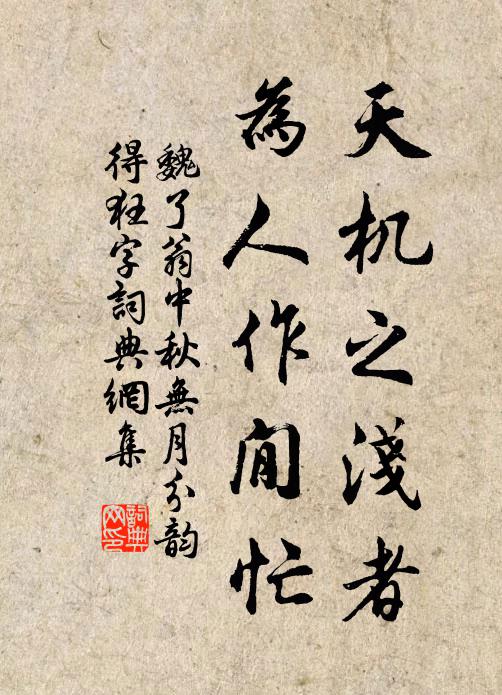 天机之淺者
為人作閒忙
魏了翁中秋無月分韵
得狂字詞典網集
詞典網印